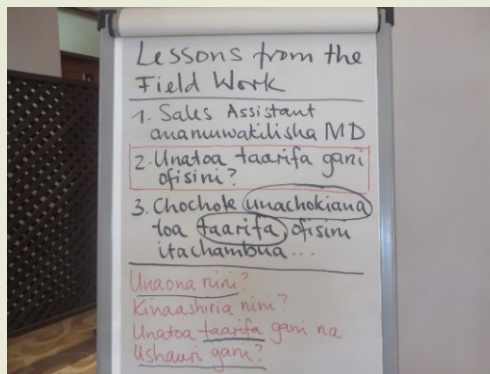 Lessons from the
Field Work
1. Sales Assistant
anamuwakilisha MD
2. Unatoa taarifa gani
ofisini?
3. Chochote unachokiona
toa taarifa ofisini
itachambua...
Unaona nini?
Kinaashiria nini?
Unatoa taarifa gani na
Ushauri gani?